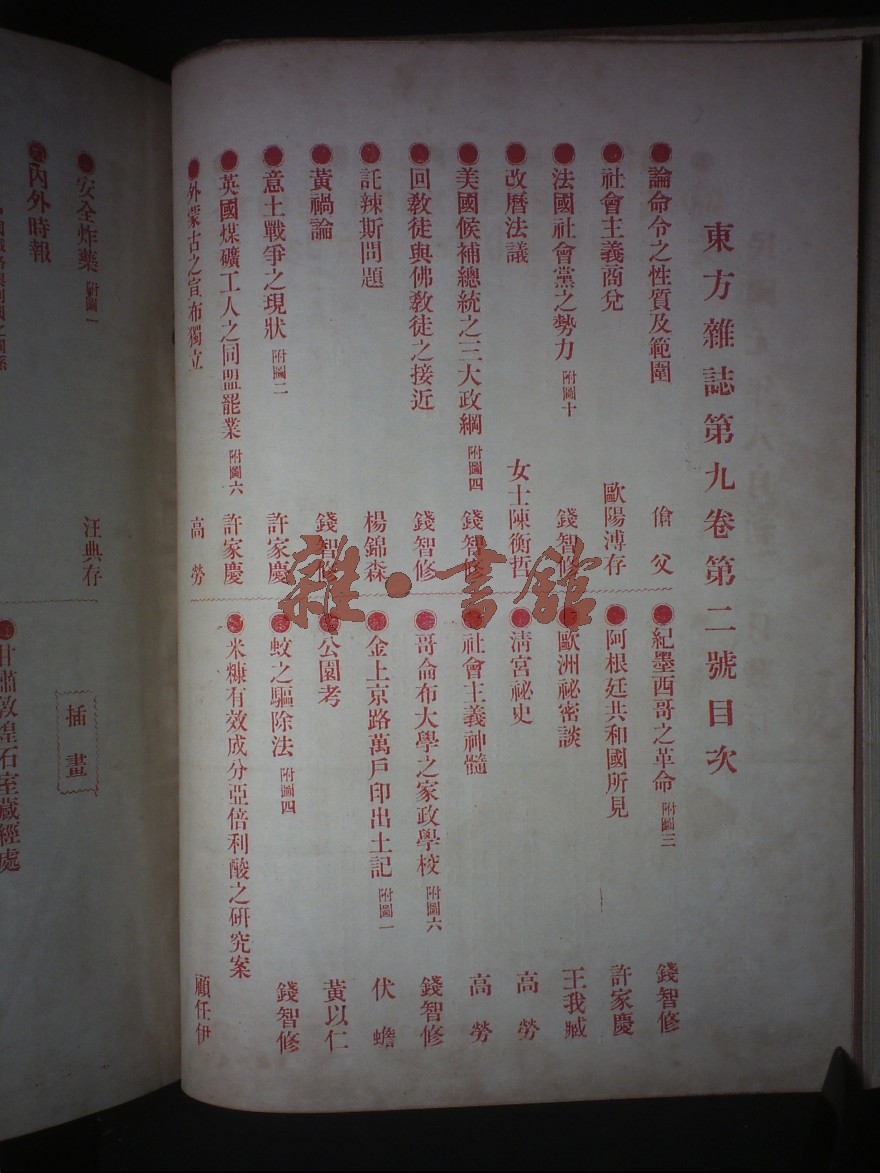 東方雜誌第九卷第二號目次
論命令之性質及範圍 傖父
社會主義商兌 歐陽溥存
法國社會黨之勢力 附圖十 錢智修
改曆法議 女士陳衡哲
美國候補總統之三大政綱 附圖四 錢智修
回教徒與佛教徒之接近 錢智修
託辣斯問題 楊錦森
黃禍論 錢智修
意土戰爭之現狀 附圖二 許家慶
英國煤礦工人之同盟罷業 附圖六 許家慶
外蒙古之宣布獨立 高勞
紀墨西哥之革命 附圖三 錢智修
阿根廷共和國所見 許家慶
歐洲祕密談 王我臧
清宮祕史 高勞
社會主義神髓 高勞
哥侖布大學之家政學校 附圖六 錢智修
金上京路萬戶印出土記 附圖一 伏蟾
公園考 黃以仁
蚊之驅除法 附圖四 錢智修
米糠有效成分亞倍利酸之研究案 顧任伊
安全炸藥 附圖一 汪典存
內外時報
插畫
甘肅敦煌石室藏經處
雜·書館